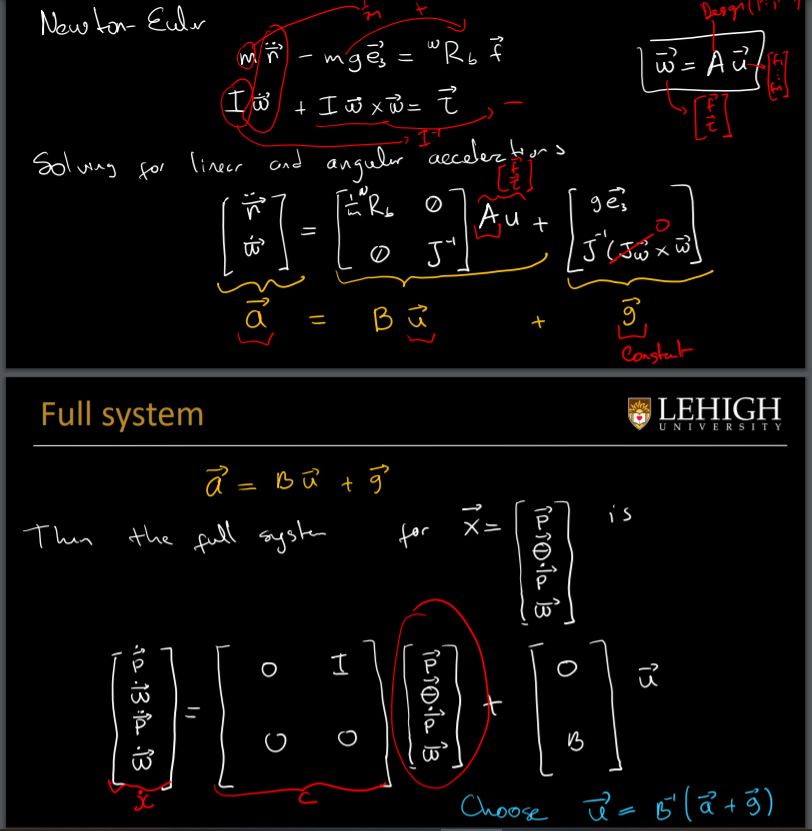 Newton-Euler 1/m +
m r̈⃗ − m g e⃗₃ = ʷR_b f⃗
I ω̇⃗ + I ω⃗ × ω⃗ = τ⃗ → −
→ I⁻¹
w⃗ = A u⃗
[f⃗ τ⃗]
Solving for linear and angular accelerations
[f⃗ τ⃗]
[r̈⃗ ω̇⃗] = [1/m ʷR_b 0 0 J⁻¹] A u + [g e⃗₃ J⁻¹(Jω⃗ × ω⃗)] 0
a⃗ = B u⃗ + g⃗
Constant
Full system
LEHIGH
UNIVERSITY
a⃗ = B u⃗ + g⃗
Then the full system for x⃗ = [p⃗ Θ⃗ ṗ⃗ ω⃗] is
[ṗ⃗ ω⃗ p̈⃗ ω̇⃗] = [0 I 0 0] [p⃗ Θ⃗ ṗ⃗ ω⃗] + [0 B] u⃗
ẋ C
Choose u⃗ = B⁻¹(a⃗ + g⃗)